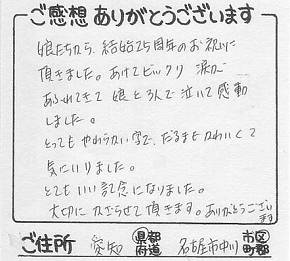 ご感想ありがとうございます
娘たちから、結婚25周年のお祝いに
頂きました。あけてビックリ 涙が
あふれてきて 娘と3人で泣いて感動
しました。
とってもやわらかい字で、だるまもかわいくて
気にいりました。
とてもいい記念になりました。
大切にかざらせて頂きます。ありがとうござい
ます
ご住所 愛知 都道府県 名古屋市中川 市区町郡